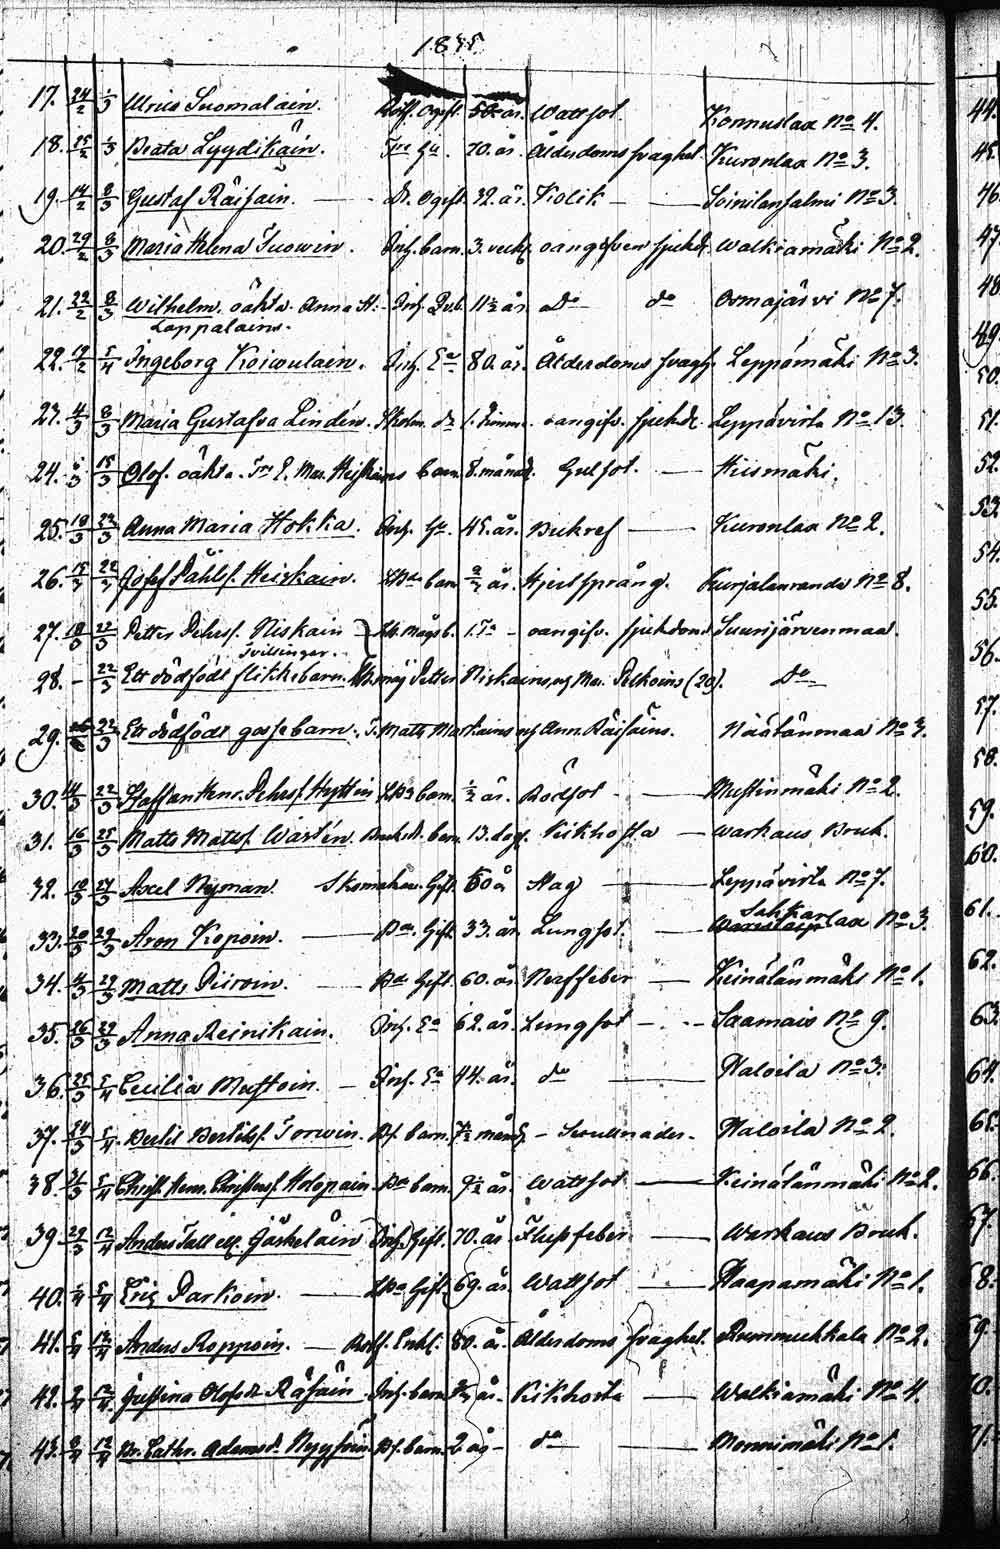 1855
17. 24/2 1/3 Ulrica Suomalain. Rotf. Ogift. 50 år. Wattsot. Konnuslax No 4.
18. 25/2 1/3 Beata Lyydikäin. 70. år. Ålderdoms svaghet. Kuronlax No 3.
19. 14/2 8/3 Gustaf Räisäin. Dr. Ogift. 32. år. Kolik Soinilansalmi No 3.
20. 29/2 8/3 Maria Helena Tuowin. Inh. barn. 3. veck. oangifven sjukd. Walkiamäki No 2.
21. 22/2 8/3 Wilhelm. oäkta. Anna H: Inh. 11½ år. Do do Osmajärvi No 7.
Lappalains.
22. 19/2 5/4 Ingeborg Koiwulain. Inh. Ea 80. år. Ålderdoms svagh. Leppämäki No 3.
23. 4/3 8/3 Maria Gustafva Lindén. dr 1. Timme. oangifv. sjukd. Leppävirta No 13.
24. 15/3 Olof. oäkta. Heiskains barn. 8. månad. Gulsot. Hiismäki.
25. 19/3 22/3 Anna Maria Hokka. Inh. Gu. 45. år. Bukref Kuronlax No 2.
26. 15/3 22/3 Josef Påhlsf. Heiskain. barn år. Hjertsprång. Kurjalanranda No 8.
27. 18/3 22/3 Petter Pehrsf. Niskain mågs b. oangifv. sjukdom Suurijärvenmaa
Tvillingar.
28. – 22/3 Ett dödfödt flickebarn. måg Petter Niskains, och Mar. Pelkoins (20). Do
29. 22/3 Ett dödfödt gossebarn. T. Matts Markains och Ann. Räisäins. Näätänmaa No 3.
30. 14/3 22/3 Staffan Henr. Pehrsf. Hyttin barn. ½ år. Rödsot Mustinmäki No 2.
31. 16/3 25/3 Matts Mattsf. Wästén. Bruksd. barn. 13. dag. Kikhosta Warkaus Bruk.
32. 18/3 27/3 Axel Nyman. Skomakare Gift. 50 år Slag Leppävirta No 7.
33. 20/3 29/3 Aron Kopoin. Da. Gift. 33. år. Lungsot. Sahkarlax No 3.
34. 4/3 29/3 Matts Piiroin. Ba Gift. 60. år. Nerffeber Keinälänmäki No 1.
35. 26/3 29/3 Anna Reinikain. Inh. Ea 62. år. Lungsot Saamais No 9.
36. 25/3 5/4 Cecilia Mustoin. Inh. Ea 44. år. do Haloila No 3.
37. 24/3 5/4 Bertil Bertilsf. Torwin. Bf. barn. 7½ mån. Haloila No 2.
38. 31/3 5/4 Christ. Henr. Christersf. Holopain Da barn. 9½ år. Wattsot Keinälänmäki No 2.
39. 29/3 12/4 Anders Tall ell. Jääskeläin Inh. Gift. 70. år. Flussfeber Warkaus Bruk.
40. 1/4 5/4 Eric Parkoin. Gift. 69. år. Wattsot Haapamäki No 1.
41. 5/4 13/4 Anders Roppoin. Rotf. Enkl. 80. år. Ålderdoms svaghet. No 2.
42. 2/4 12/4 Justina Olofsdr Räsäin Inh. barn. år. Kikhosta Walkiamäki No 4.
43. 8/4 12/4 Cathr. Adamsdr. Nyyssöin Bf. barn. 2 år do Monnimäki No 1.
44.
45.
46.
47.
48.
49.
50.
51.
52.
53.
54.
55.
56.
57.
58.
59.
60.
61.
62.
63.
64.
65.
66.
67.
68.
69.
70.
71.